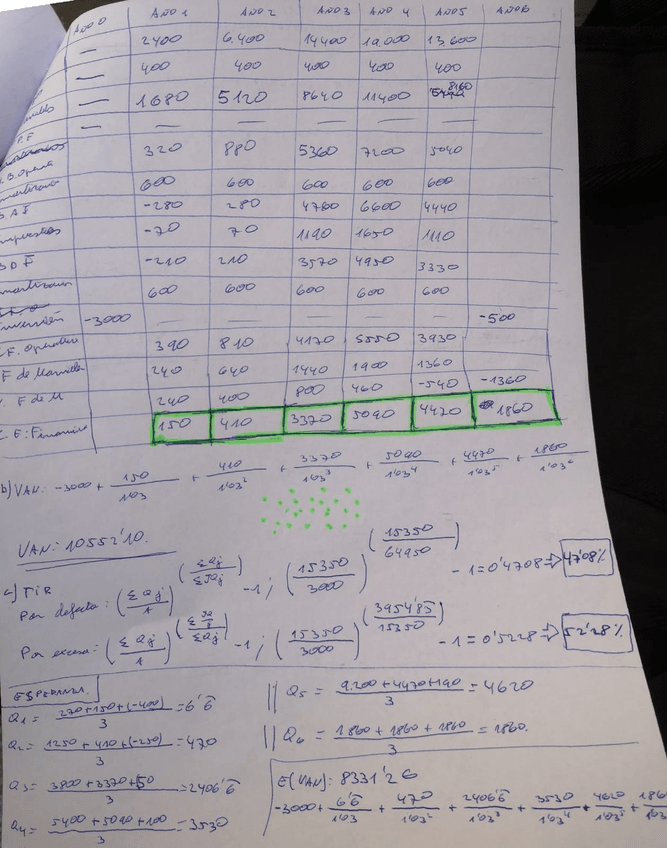 AÑO 0 AÑO 1 AÑO 2 AÑO 3 AÑO 4 AÑO 5 AÑO 6
— 2400 6.400 14400 19.000 13.600
— 400 400 400 400 400
— 1680 5120 8640 11400 8160
— — — — — —
320 880 5360 7200 5040
600 600 600 600 600
-280 280 4760 6600 4440
-70 70 1190 1650 1110
-210 210 3570 4950 3330
600 600 600 600 600
-3000 — — — — — -500
390 810 4170 5550 3930
240 640 1440 1900 1360
240 400 800 460 -540 -1360
150 410 3370 5090 4470 1860
b) VAN: -3000 + 150/1'03 + 410/1'03² + 3370/1'03³ + 5090/1'03⁴ + 4470/1'03⁵ + 1860/1'03⁶
VAN: 10552'10.
c) TIR
Por defecto: (ΣQj/A)^(ΣQj/ΣJQj) -1; (15350/3000)^(15350/64950) -1 = 0'4708 => 47'08%
Por exceso: (ΣQj/A) -1; (15350/3000)^(3954'85/15350) -1 = 0'5228 => 52'28%
ESPERANZA.
Q1 = 270+150+(-400)/3 = 6'6
Q2 = 1250+410+(-250)/3 = 470
Q3 = 3800+3370+50/3 = 2406'6
Q4 = 5400+5090+100/3 = 3530
|| Q5 = 9.200+4470+190/3 = 4620
|| Q6 = 1860+1860+1860/3 = 1860.
E(VAN): 8331'26
-3000 + 6'6/1'03 + 470/1'03² + 2406'6/1'03³ + 3530/1'03⁴ + 4620/1'03⁵ +